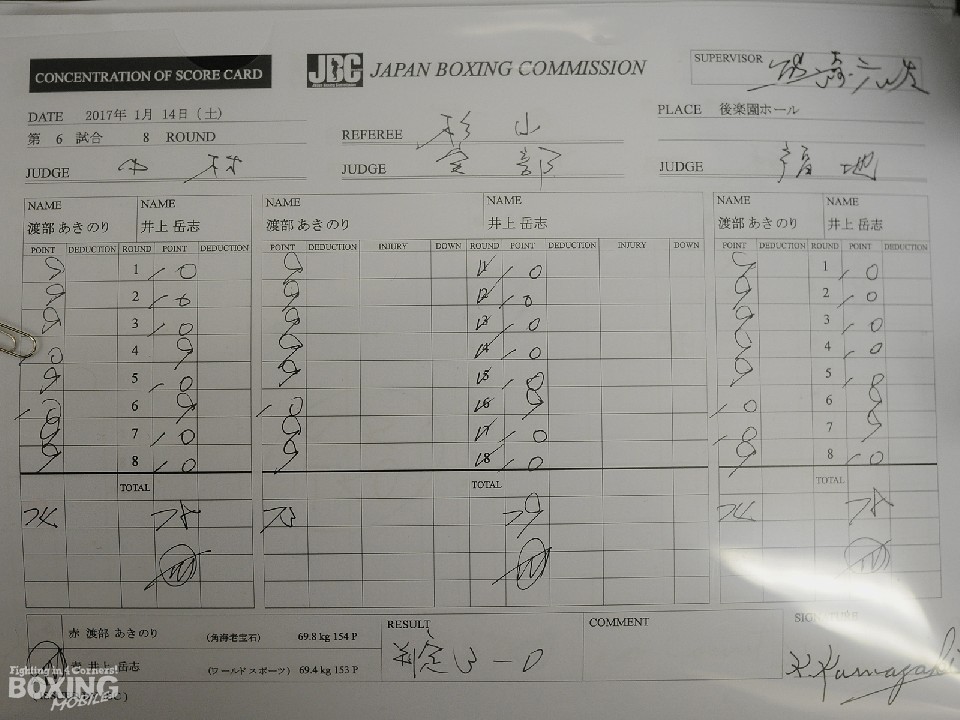 CONCENTRATION OF SCORE CARD
JBC JAPAN BOXING COMMISSION
SUPERVISOR
DATE 2017年 1月 14日 (土)
PLACE 後楽園ホール
第 6 試合 8 ROUND
REFEREE 杉山
JUDGE 中村
JUDGE
JUDGE 福地
NAME NAME NAME NAME NAME NAME
渡部 あきのり 井上 岳志 渡部 あきのり 井上 岳志 渡部 あきのり 井上 岳志
POINT DEDUCTION ROUND POINT DEDUCTION POINT DEDUCTION INJURY DOWN ROUND POINT DEDUCTION INJURY DOWN POINT DEDUCTION ROUND POINT DEDUCTION
9 1 10 9 1 10 9 1 10
9 2 10 9 2 10 9 2 10
9 3 10 9 3 10 9 3 10
10 4 9 9 4 10 9 4 10
9 5 10 9 5 10 9 5 10
10 6 9 10 6 9 10 6 9
9 7 10 9 7 10 10 7 9
9 8 10 9 8 10 9 8 10
TOTAL TOTAL TOTAL
74 78 73 79 74 78
赤 渡部 あきのり (角海老宝石) 69.8 kg 154 P
井上 岳志 (ワールドスポーツ) 69.4 kg 153 P
RESULT
判定 3-0
COMMENT
SIGNATURE
K.Kumagaki
Fighting in 4 Corners!
BOXING
MOBILE